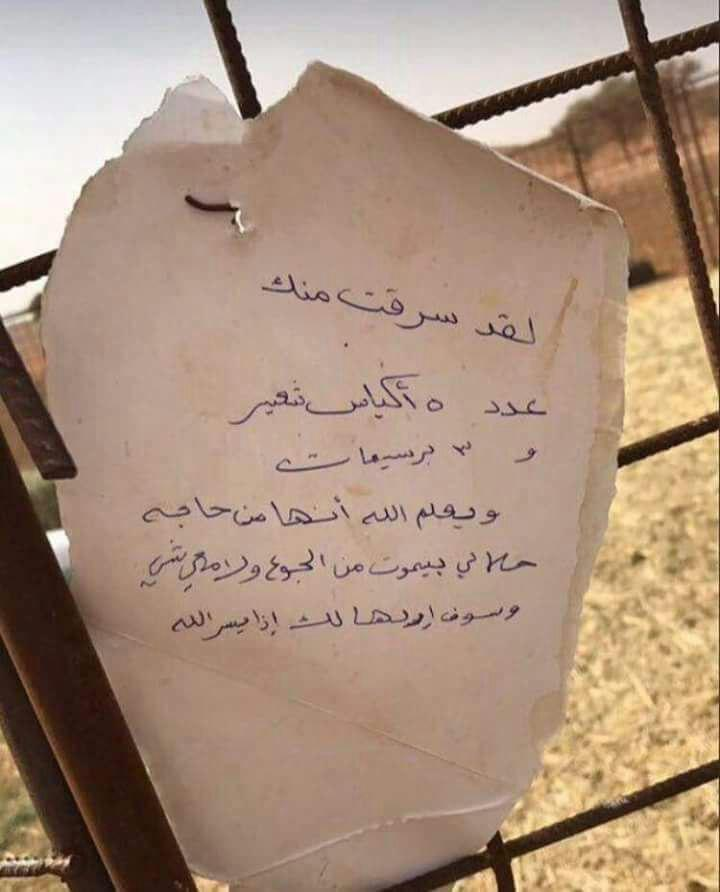 لقد سرقت منك
عدد ٥ أكياس شعير
و ٣ برسيمات
ويعلم الله أنها من حاجه
حلالي بيموت من الجوع ولا معي شي
وسوف اردها لك إذا يسر الله